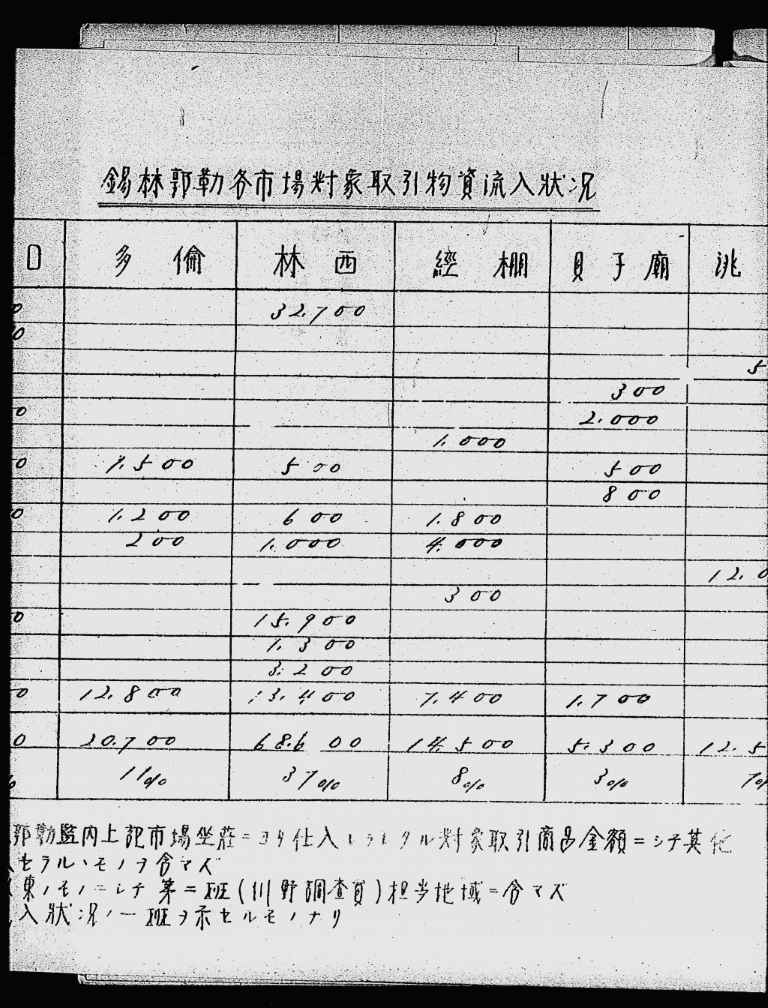 錫林郭勒各市場対象取引物資流入状況
口 多倫 林西 經棚 貝子廟 洮
0 32.700
0
5
300
0 2.000
1.000
0 7.500 500 500
800
0 1.200 600 1.800
200 1.000 4.000
12.0
300
0 15.900
1.300
3.200
0 12.800 13.400 7.400 1.700
0 20.700 68.600 14.500 5.300 12.5
% 11% 37% 8% 3% 7%
郭勒盟内上記市場坐莊ニヨリ仕入レラレタル対象取引商品金額ニシテ其他
セラル、モノヲ含マズ
東ノモノニシテ第二班(川野調査員)担当地域ニ含マズ
入状況ノ一班ヲ示セルモノナリ